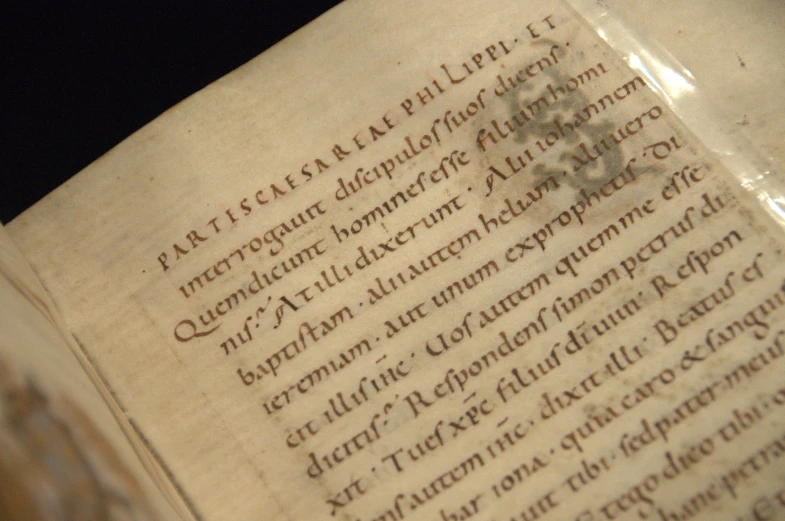 PARTISCAESAREAE PHILIPPI · ET
interrogauit discipulos suos dicens ·
Quem dicunt homines esse filium homi
nis · At illi dixerunt · Alii iohannem
baptistam · alii autem heliam · alii uero
ieremiam · aut unum ex prophetis · Di
cit illis ihc · Uos autem quem me esse
dicitis · Respondens simon petrus di
xit · Tu es xpc filius di uiui · Respon
dens autem ihc · dixit illi · Beatus es
bar iona · quia caro & sanguis
tibi · sed pater meus
Et ego dico tibi ·
hanc petra